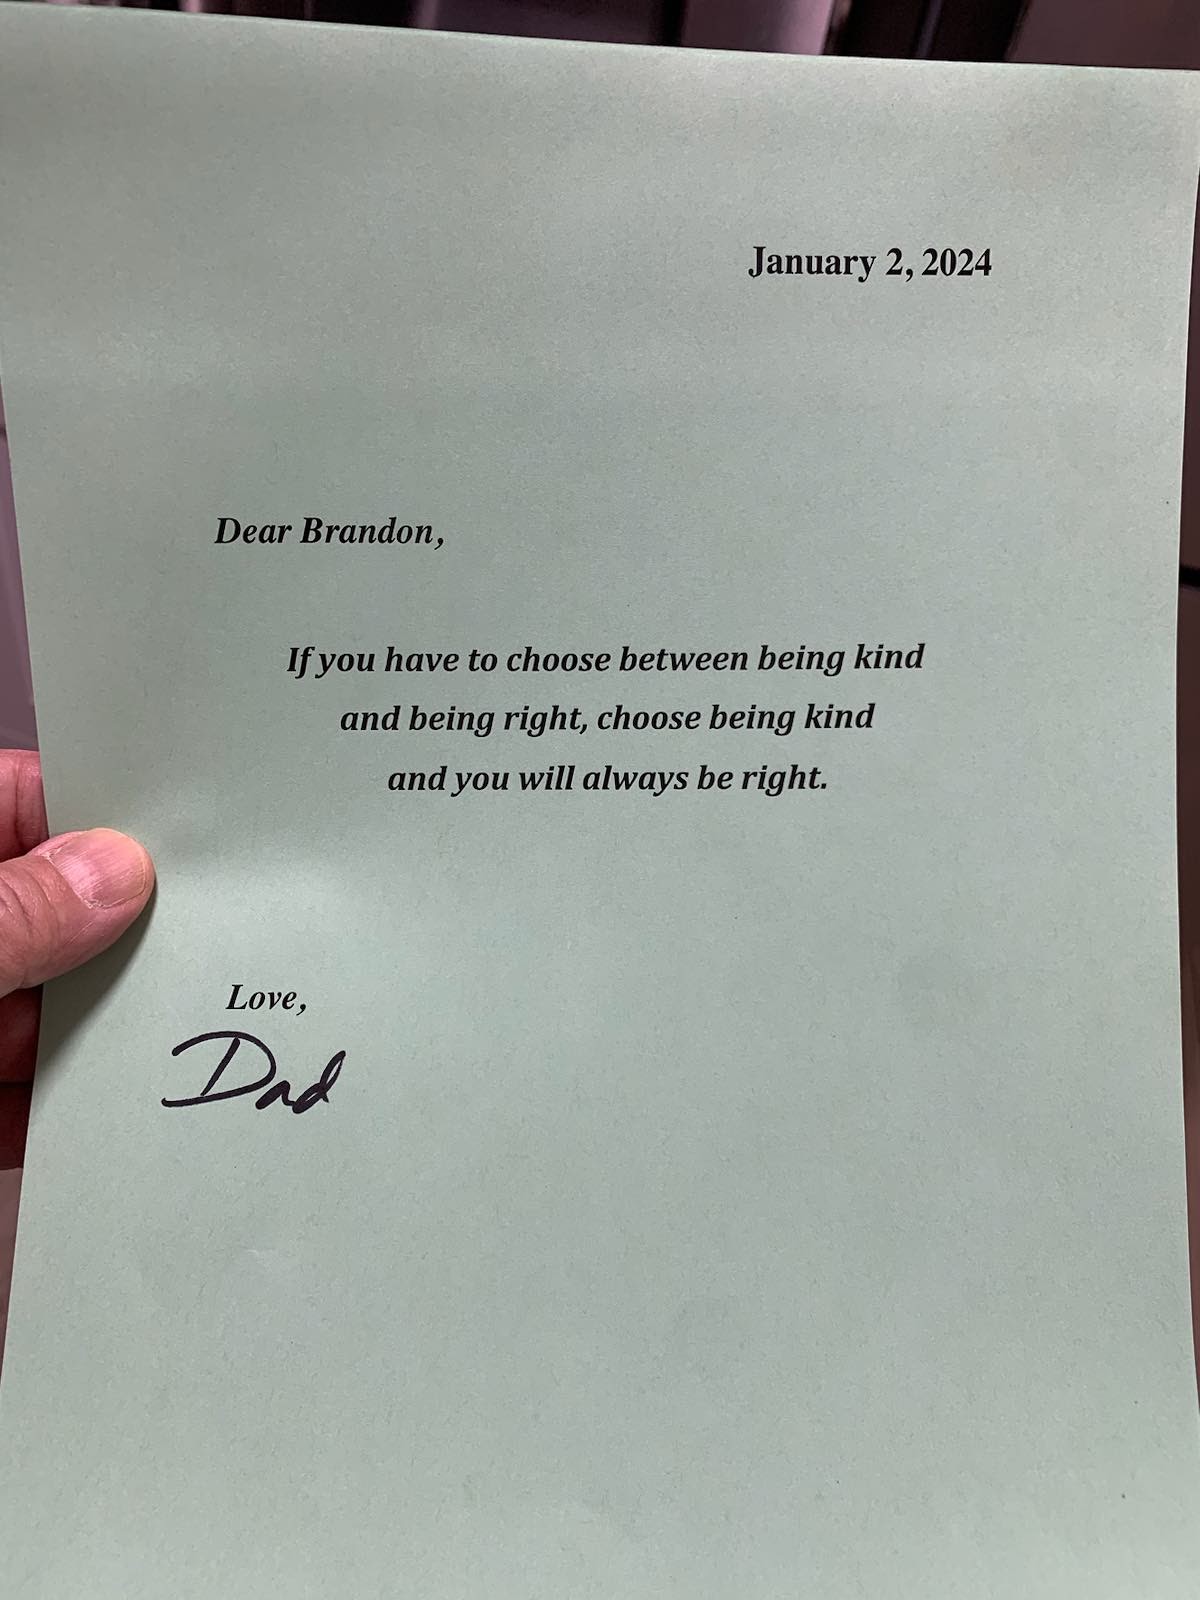 January 2, 2024
Dear Brandon,
If you have to choose between being kind
and being right, choose being kind
and you will always be right.
Love,
Dad